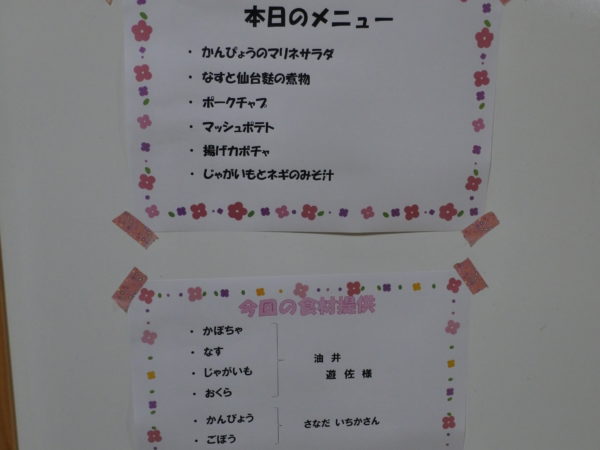 本日のメニュー
・ かんぴょうのマリネサラダ
・ なすと仙台麩の煮物
・ ポークチャプ
・ マッシュポテト
・ 揚げカボチャ
・ じゃがいもとネギのみそ汁
今回の食材提供
・ かぼちゃ
・ なす
・ じゃがいも
・ おくら
油 井
遊 佐 様
・ かんぴょう
・ ごぼう
さなだ いちかさん